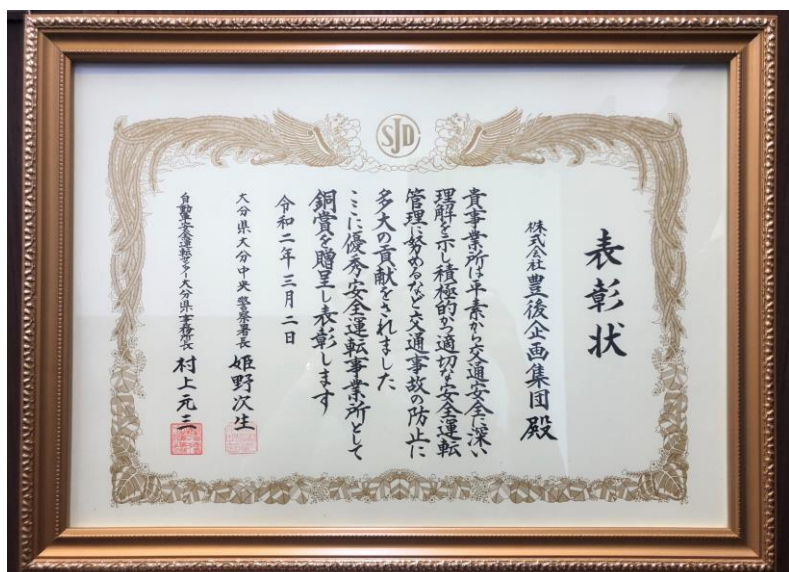 SJD
表彰状
株式会社豊後企画集団殿
貴事業所は平素から交通安全に深い
理解を示し積極的かつ適切な安全運転
管理に努めるなど交通事故の防止に
多大の貢献をされました
ここに優秀安全運転事業所として
銅賞を贈呈し表彰します
令和二年三月二日
大分県大分中央警察署長 姫野次生
自動車安全運転センター大分県事務所長 村上元三